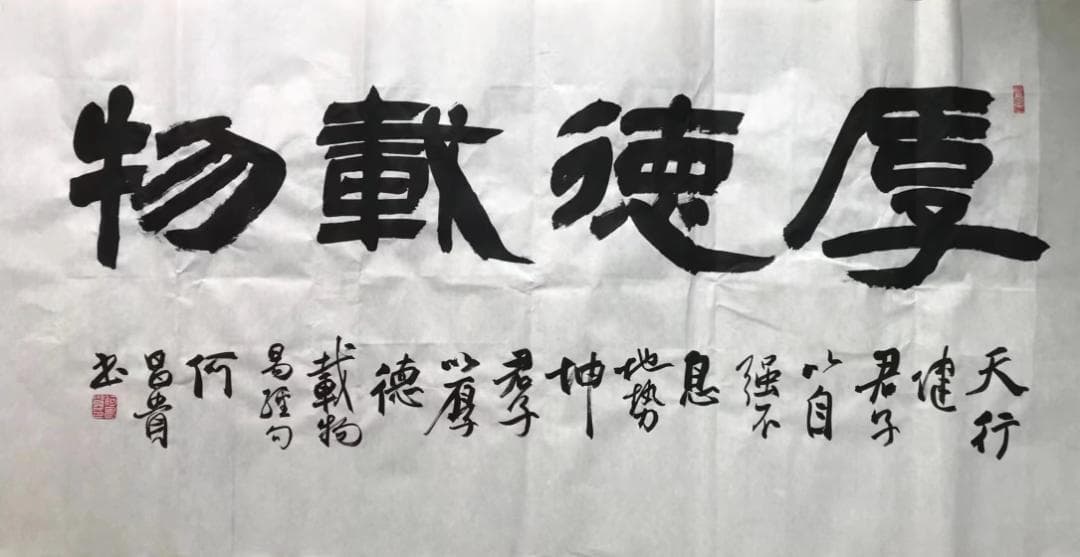 厚德載物
天行
健
君子
以自
强不
息
地势
坤
君子
以厚
德
載物
易經句
何
昌貴
书